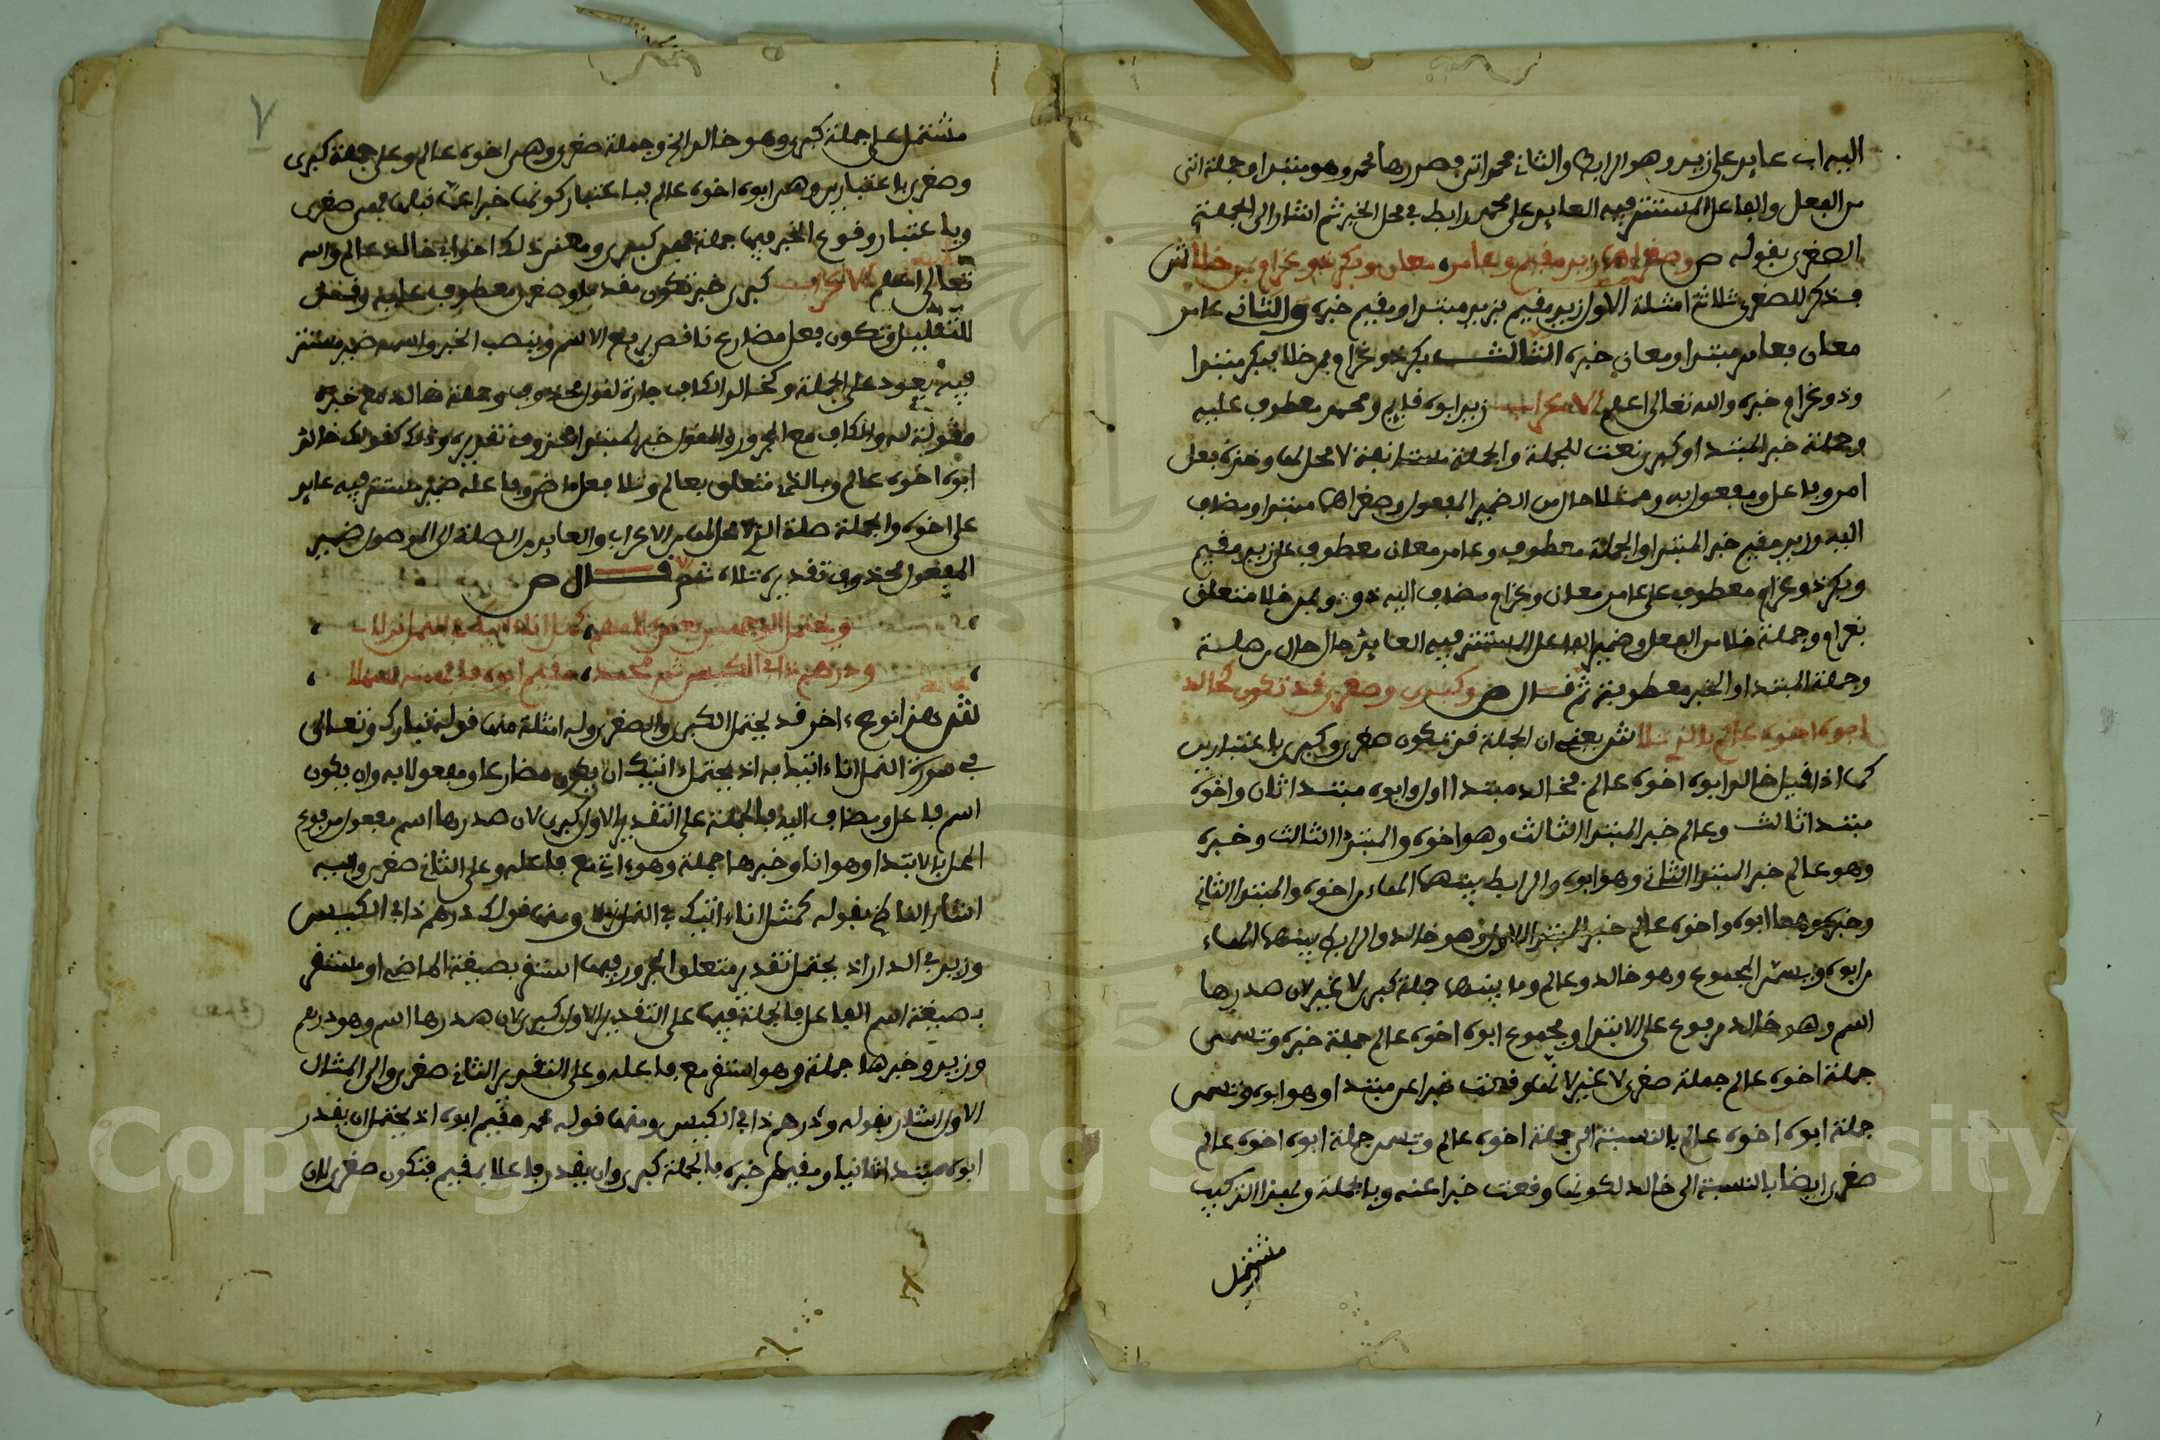 اليه اب عايد على زيد وهو الرابط والثاني محمد اتى فصدرها محمد وهو مبتدا وجملة اتى
من الفعل والفاعل المستتر فيه العايد على محمد رابط في محل الخبر ثم اشار الى الجملة
الصغرى بقوله ص وصغراها زيد مقيم وعامر معان وبكر ذو غرام بمن خلا ش
فذكر للصغرى ثلاثة امثلة الاول زيد مقيم فزيد مبتدا ومقيم خبره والثاني عامر
معان فعامر مبتدا ومعان خبره الثالث بكر ذو غرام بمن خلا فبكر مبتدا
وذو غرام خبره والله تعالى اعلم الاعراب زيد ابوه قايم ومحمد معطوف عليه
وجملة خبر المبتدا وكبرى نعت للجملة والجملة مستانفة لا محل لها وخذه فعل
امر وفاعل ومفعول به وممثلا حال من الضمير المفعول وصغراها مبتدا ومضاف
اليه وزيد مقيم خبر المبتدا والجملة معطوف وعامر معان معطوف على زيد مقيم
وبكر ذو غرام معطوف على عامر معان وغرام مضاف اليه ذو وبمن خلا متعلق
بغرام وجملة خلا من الفعل وضمير الفاعل المستتر فيه العايد حال من صلة
وجملة المبتدا والخبر معطوفة ثم قال ص وكبرى وصغرى قد تكون كخالد
ابوه اخوه عالم بالذي تلا ش يعني ان الجملة قد تكون صغرى وكبرى باعتبارين
كما اذا قيل خالد ابوه اخوه عالم فخالد مبتدا اول وابوه مبتدا ثان واخوه
مبتدا ثالث وعالم خبر المبتدا الثالث وهو اخوه والمبتدا الثالث وخبره
وهو عالم خبر المبتدا الثاني وهو ابوه والرابط بينهما الهاء من اخوه والمبتدا الثاني
وخبره وهما ابوه واخوه عالم خبر المبتدا الاول وهو خالد والرابط بينهما الهاء
من ابوه ويسمى المجموع وهو خالد وعالم وما بينهما جملة كبرى لا غير لان صدرها
اسم وهو خالد مرفوع على الابتدا ومجموع ابوه اخوه عالم جملة خبره وتسمى
جملة اخوه عالم جملة صغرى لا غير لانها وقعت خبرا عن مبتدا وهو ابوه وتسمى
جملة ابوه اخوه عالم بالنسبة الى جملة اخوه عالم وتسمى جملة ابوه اخوه عالم
صغرى ايضا بالنسبة الى خالد لكونها وقعت خبرا عنه وبالجملة ولهذا التركيب
مشتمل
٧
مشتمل على جملة كبرى وهو خالد الخ وجملة صغرى وهي اخوه عالم وعلى جملة كبرى
وصغرى باعتبارين وهي ابوه اخوه عالم فباعتبار كونها خبرا عما قبلها فهي صغرى
وباعتبار وقوع الخبر فيها جملة فهي كبرى ومعنى ذلك اخو ابي خالد عالم والله
تعالى اعلم الاعراب كبرى خبر تكون مقدما وصغرى معطوف عليه وقد
للتقليل وتكون فعل مضارع ناقص يرفع الاسم وينصب الخبر واسمه ضمير مستتر
فيه يعود على الجملة وكخالد الكاف جارة لقول محذوف وجملة خالد مع خبره
مقولة له والكاف مع المجرور والمقول خبر المبتدا المحذوف تقديره وذلك كقولك خالد
ابوه اخوه عالم وبالذي متعلق بعالم وتلا فعل ماض وفاعله ضمير مستتر فيه عايد
على اخوه والجملة صلة الذي لا محل لها من الاعراب والعايد من الصلة الى الموصول ضمير
المفعول محذوف تقديره تلاه ثم قال ص
في النمل انزلا
ودرهم ذا في الكيس ثم محمد مقيم ابوه
ش هذا نوع اخر قد يحتمل الكبرى والصغرى وله امثلة منها قوله تبارك وتعالى
في سورة النمل انا ءاتيك به اذ يحتمل ءاتيك ان يكون مضارعا ومفعولا به وان يكون
اسم فاعل ومضاف اليه فالجملة على التقدير الاول كبرى لان صدرها اسم مفعول مرفوع
المحل بالابتدا وهو انا وخبرها جملة وهو ءاتي مع فاعله وعلى الثاني صغرى واليه
اشار الناظم بقوله كمثل انا ءاتيك في النمل انزلا ومنها قولك درهم ذا في الكيس
وزيد في الدار اذ يحتمل تقدير متعلق المجرور فيهما استقر بصيغة الماضي او مستقر
بصيغة اسم الفاعل فالجملة فيهما على التقدير الاول كبرى لان صدرها اسم وهو درهم
وزيد وخبرها جملة وهو استقر مع فاعله وعلى التقدير الثاني صغرى والى المثال
الاول اشار بقوله ودرهم ذا في الكيس ومنها قوله محمد مقيم ابوه اذ يحتمل ان يقدر
ابوه مبتدا ثانيا ومقيم خبره فالجملة كبرى وان يقدر فاعلا بمقيم فتكون صغرى لان
Copyright © King Saud University